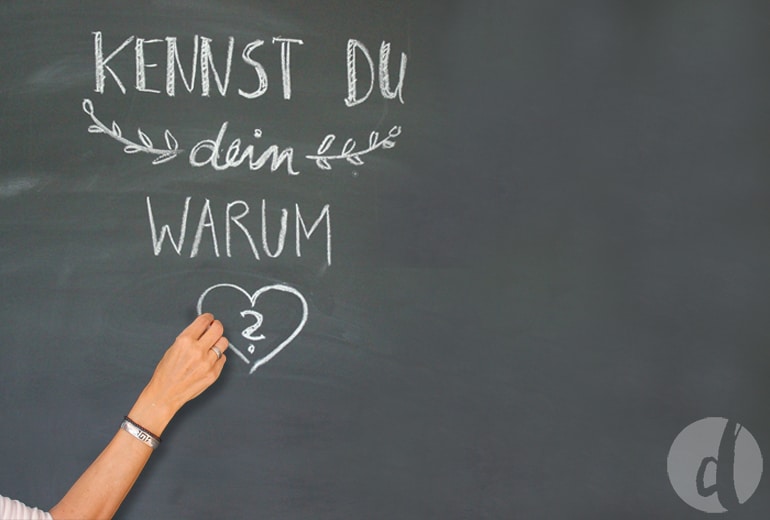 KENNST DU
dein
WARUM
?
d